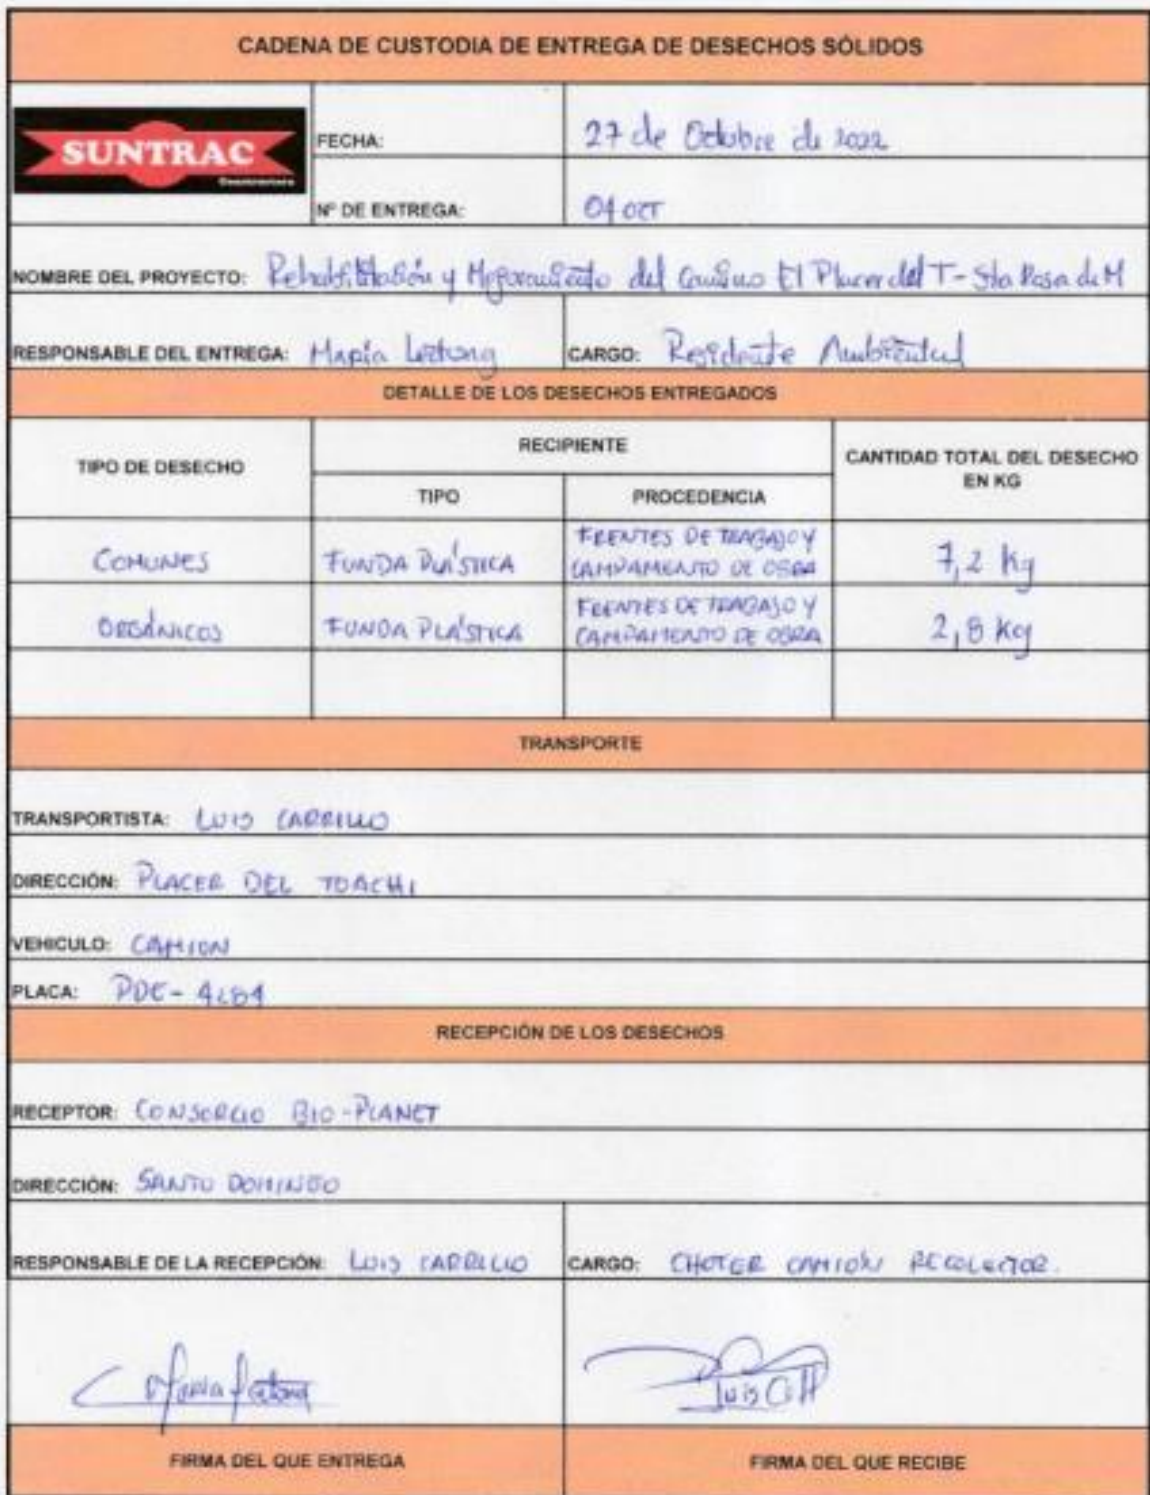 CADENA DE CUSTODIA DE ENTREGA DE DESECHOS SÓLIDOS
SUNTRAC
Constructora
FECHA: 27 de Octubre de 2022
Nº DE ENTREGA: 04 OCT
NOMBRE DEL PROYECTO: Rehabilitación y Mejoramiento del Camino El Placer del T - Sta Rosa de M
RESPONSABLE DEL ENTREGA: María CARGO: Residente Ambiental
DETALLE DE LOS DESECHOS ENTREGADOS
TIPO DE DESECHO
RECIPIENTE
CANTIDAD TOTAL DEL DESECHO
EN KG
TIPO PROCEDENCIA
COMUNES FUNDA PLÁSTICA FRENTES DE TRABAJO Y
CAMPAMENTO DE OBRA 7,2 Kg
ORGÁNICOS FUNDA PLÁSTICA FRENTES DE TRABAJO Y
CAMPAMENTO DE OBRA 2,8 Kg
TRANSPORTE
TRANSPORTISTA: LUIS CARRILLO
DIRECCIÓN: PLACER DEL TOACHI
VEHICULO: CAMION
PLACA:
RECEPCIÓN DE LOS DESECHOS
RECEPTOR: CONSORCIO BIO-PLANET
DIRECCIÓN: SANTO DOMINGO
RESPONSABLE DE LA RECEPCIÓN: LUIS CARRILLO CARGO: CHOFER CAMIÓN RECOLECTOR.
FIRMA DEL QUE ENTREGA FIRMA DEL QUE RECIBE